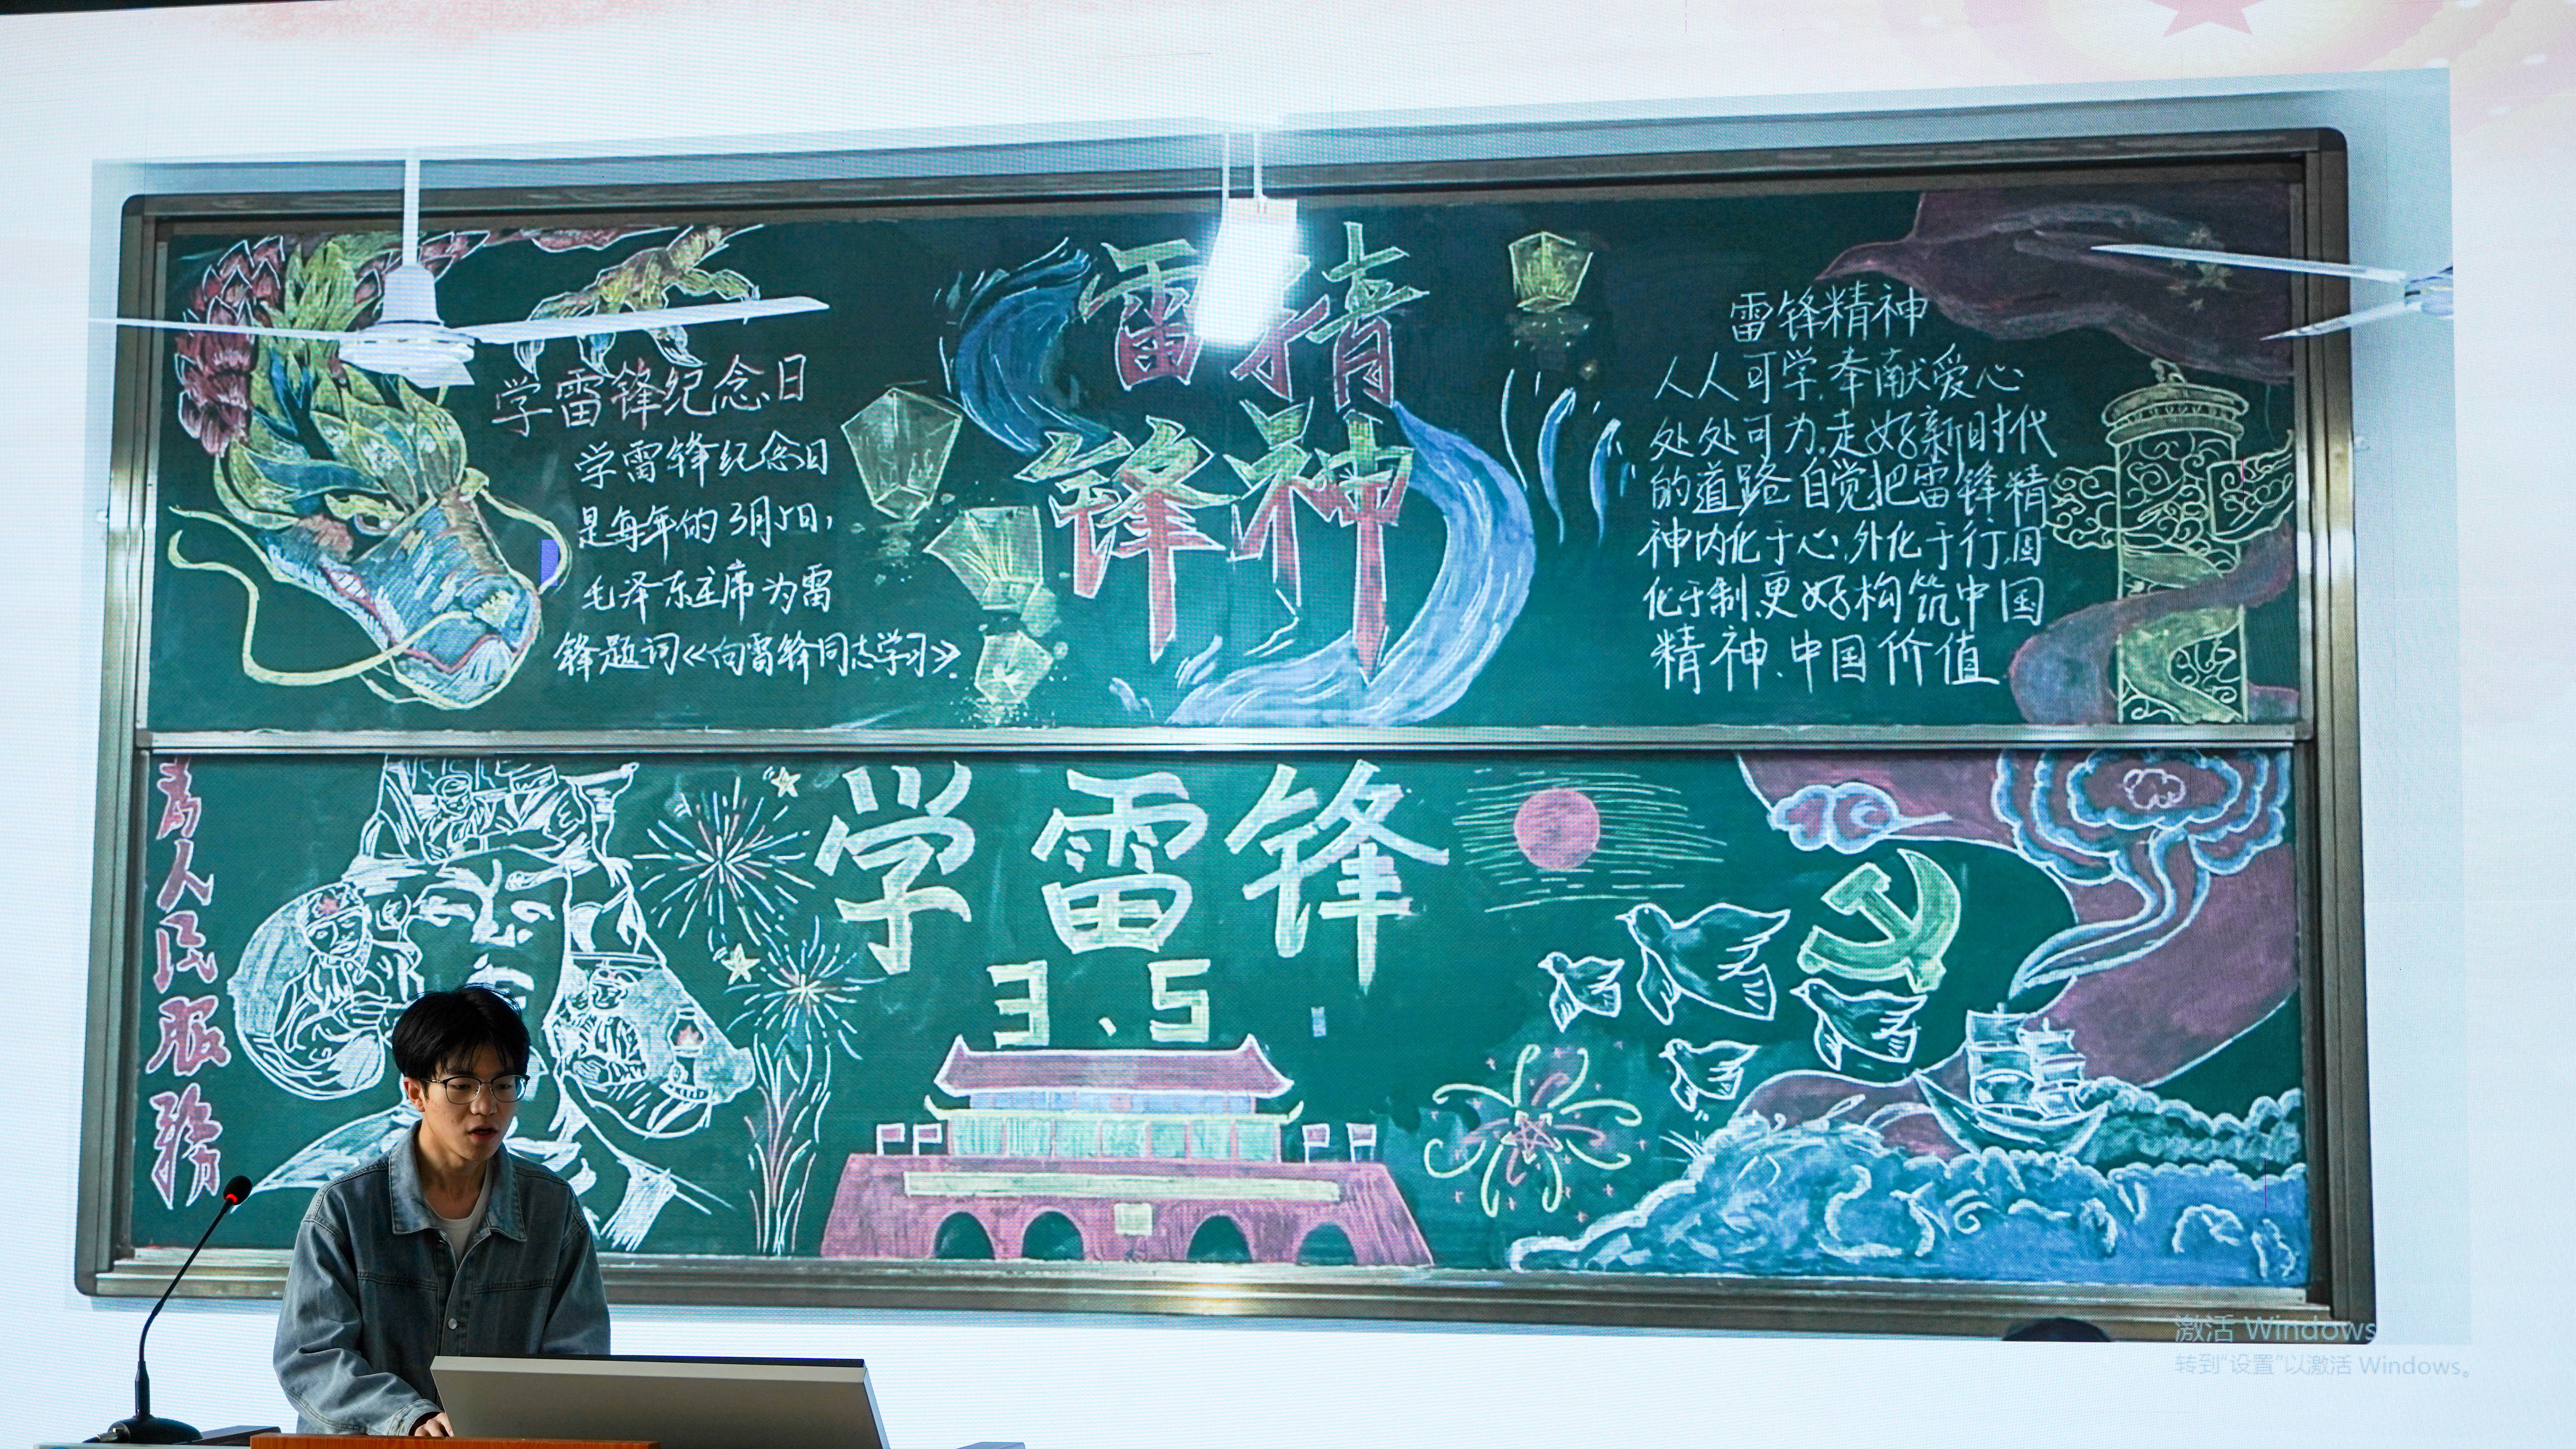 学雷锋纪念日
学雷锋纪念日
是每年的3月5日，
毛泽东主席为雷
锋题词《向雷锋同志学习》
雷锋
精神
雷锋精神
人人可学,奉献爱心
处处可为,走好新时代
的道路,自觉把雷锋精
神内化于心,外化于行,固
化于制,更好构筑中国
精神、中国价值
为人民服務
学雷锋
3、5
激活 Windows
转到“设置”以激活 Windows。